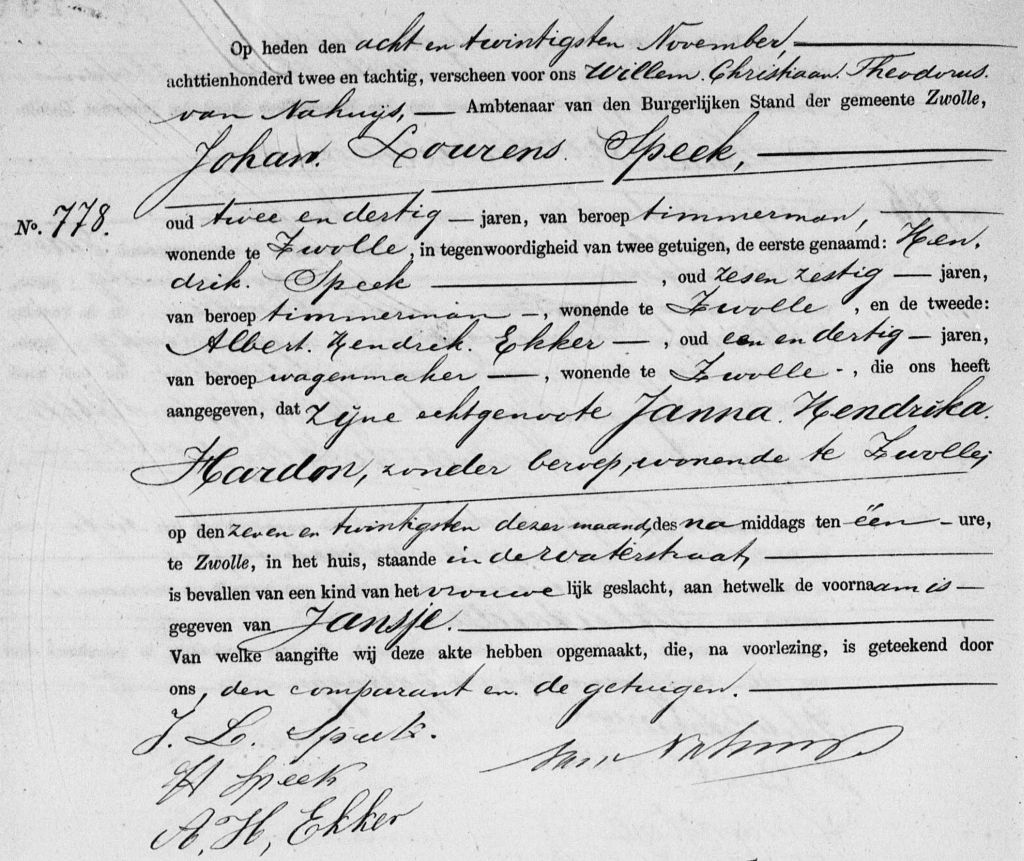 Op heden den acht en twintigsten November,
achttienhonderd twee en tachtig, verscheen voor ons Willem Christiaan Theodorus
van Nahuys, Ambtenaar van den Burgerlijken Stand der gemeente Zwolle,
Johan Lourens Speek,
No. 778. oud twee en dertig jaren, van beroep timmerman,
wonende te Zwolle, in tegenwoordigheid van twee getuigen, de eerste genaamd: Hen,
drik Speek, oud zes en zestig jaren,
van beroep timmerman, wonende te Zwolle, en de tweede:
Albert Hendrik Ekker, oud een en dertig jaren,
van beroep wagenmaker, wonende te Zwolle, die ons heeft
aangegeven, dat zijne echtgenoote Janna Hendrika
Hardon, zonder beroep, wonende te Zwolle,
op den zeven en twintigsten dezer maand, des na middags ten één ure,
te Zwolle, in het huis, staande in de Waterstraat,
is bevallen van een kind van het vrouwelijk geslacht, aan hetwelk de voornaam is
gegeven van Jansje.
Van welke aangifte wij deze akte hebben opgemaakt, die, na voorlezing, is geteekend door
ons, den comparant en de getuigen.
J. L. Speek.
van Nahuys
H Speek
A. H, Ekker